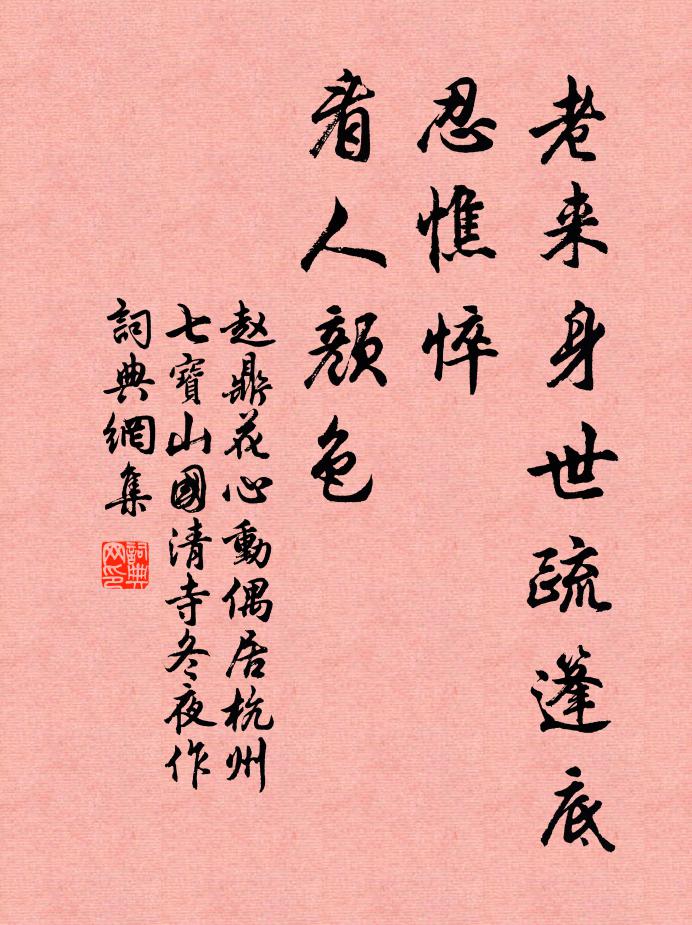 老来身世疏篷底
忍憔悴
看人颜色
赵鼎花心動偶居杭州
七寶山國清寺冬夜作
詞典網集
詞典网印